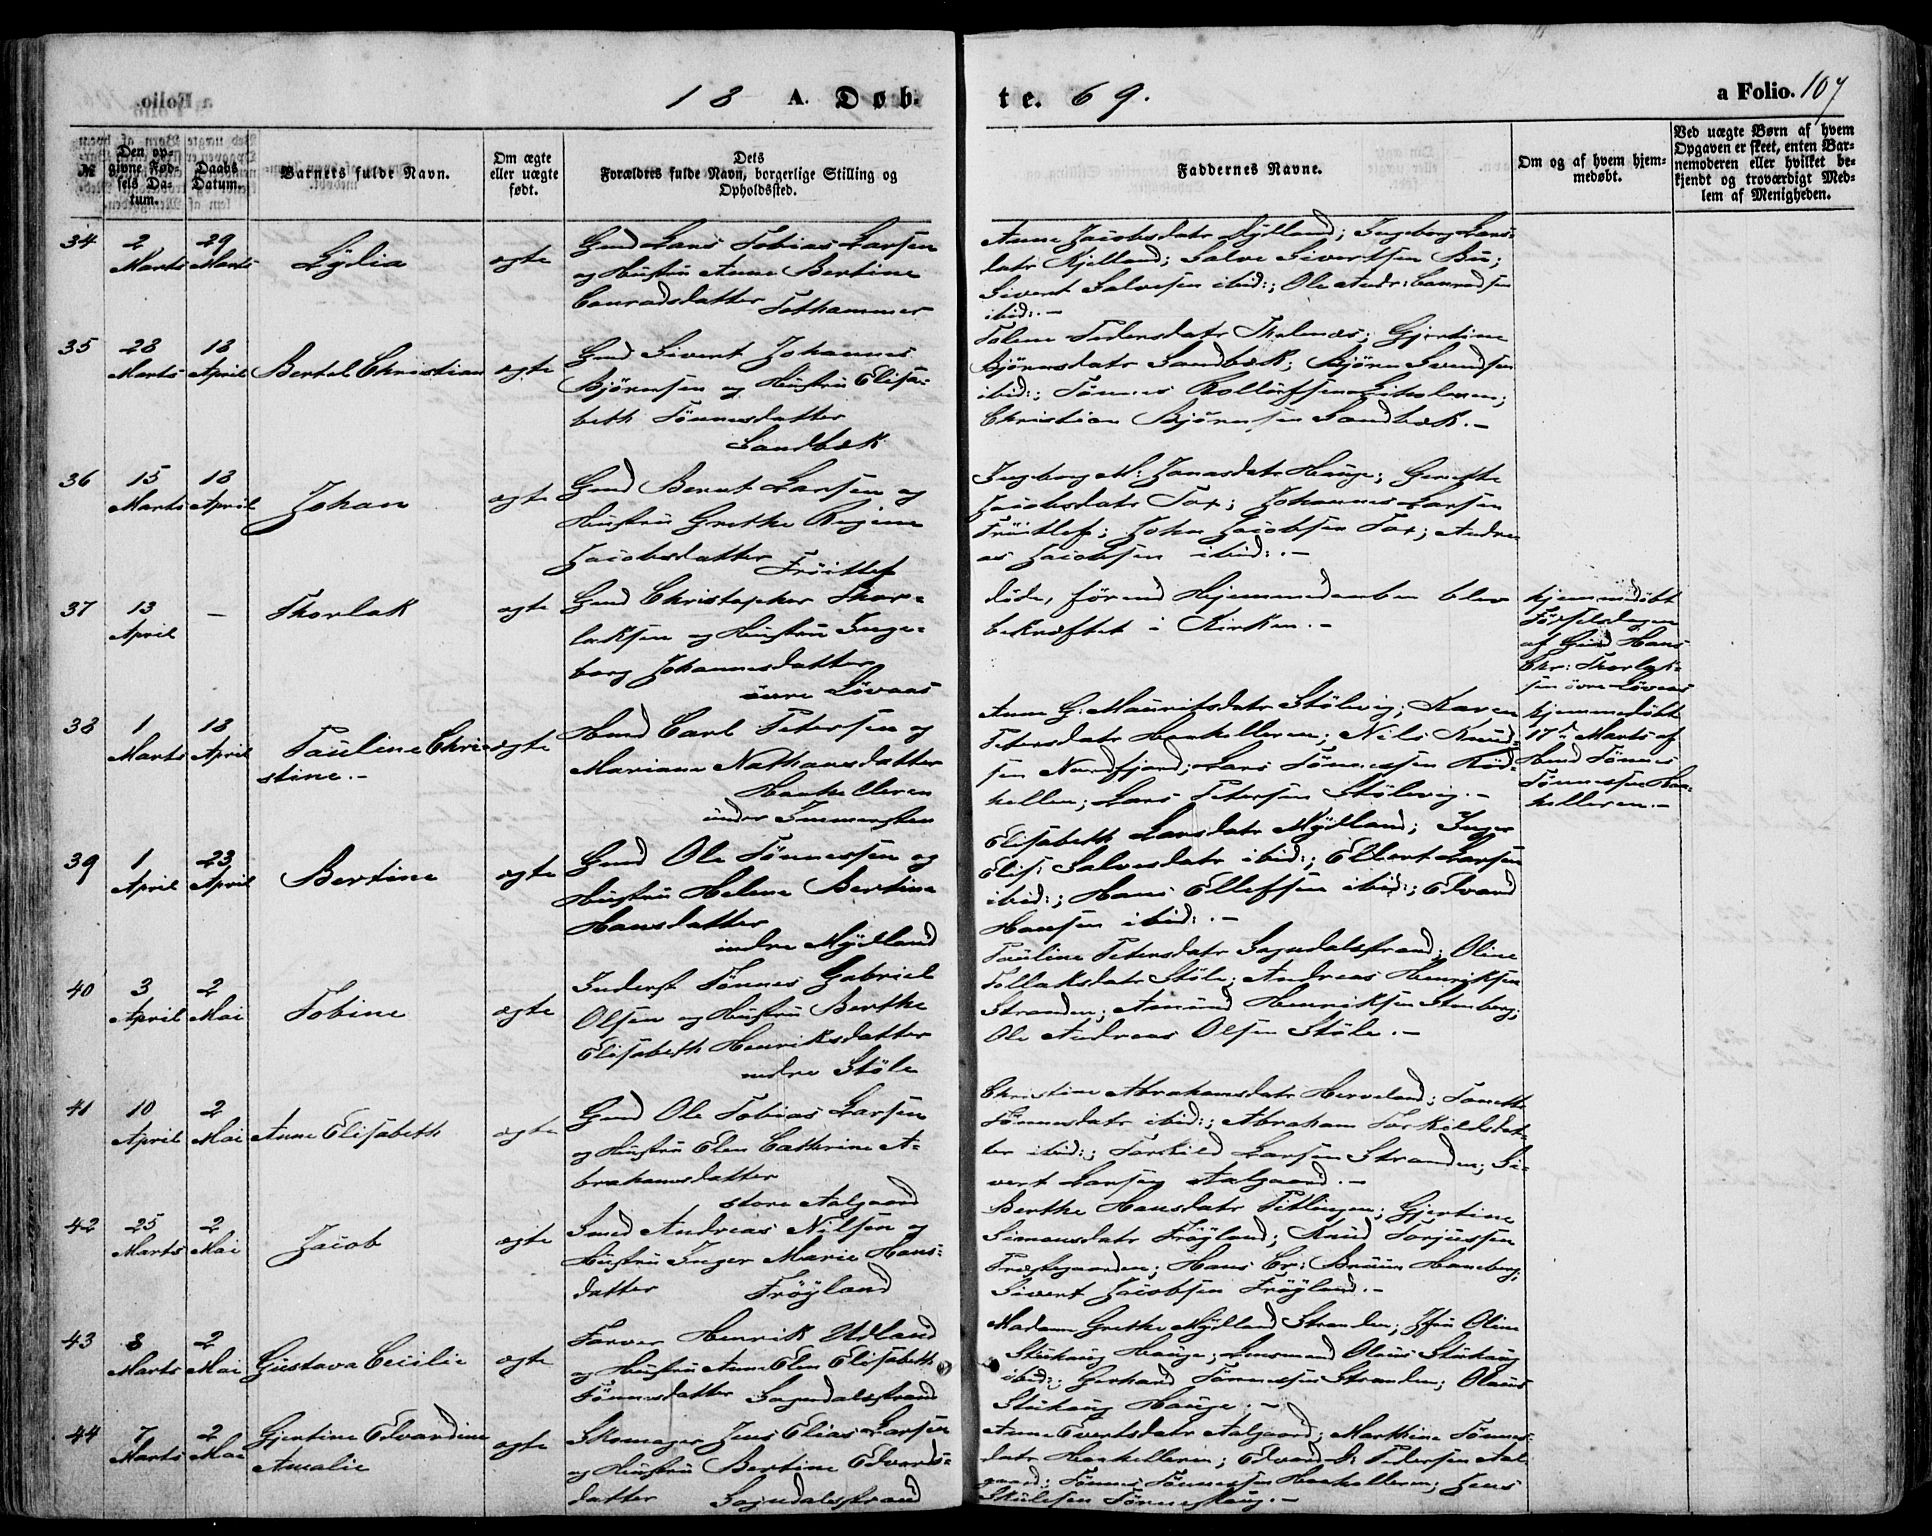 18 A. Døb-
te. 69.
a Folio. 107
№
Den op-
givne Fød-
sels Da-
tum.
Daabs
Datum.
Barnets fulde Navn.
Om ægte
eller uægte
født.
Dets
Forældres fulde Navn, borgerlige Stilling og
Opholdssted.
Faddernes Navne.
Om og af hvem hjem-
medøbt.
Ved uægte Børn af hvem
Opgaven er skeet, enten Bar-
nemoderen eller hvilket be-
kjendt og troværdigt Med-
lem af Menigheden.
34
2
Marts
29
Marts
Lydia
ægte
Gmd Lars Tobias Larsen
og Hustru Anne Bertine
Conradsdatter
Tothammer
Anne Jacobsdatr Mydland; Ingeborg Lars-
datr Kjelland; Salve Sivertsen Bu;
Sivert Salvesen ibid:; Ole Andr: Conradsen
ibid:.—
35
28
Marts
18
April
Bertel Christian
ægte
Gmd Sivert Johannes
Bjørnsen og Hustru Elisa-
beth Tønnesdatter
Sandbæk
Tolene Pedersdatr; Gjertine
Bjørnsdatr Sandbæk; Bjørn Svendsen
ibid:; Tønnes Rollufsen Litholmen;
Christian Bjørnsen Sandbæk.—
36
15
Marts
18
April
Johan
ægte
Gmd Bernt Larsen og
Hustru Grethe Regine
Jacobsdatter
Frøitlef
Ingeborg M: Jonasdatr Hauge; Gurette
Jacobsdatr Tox; Johannes Larsen
Frøitlef; John Jacobsen Tox; Andre
as Jacobsen ibid:.—
37
13
April
—
Thorlak
ægte
Gmd Christopher Thor-
laksen og Hustru Inge-
borg Johannesdatter
øvre Løvaas
døde, førend Hjemmedaaben blev
bekræftet i Kirken.—
hjemmedøbt
Fødselsdagen
af Gmd Hans
Chr: Thorlak-
sen øvre Løvaas
38
1
Marts
18
April
Pauline Chri-
stine.—
ægte
Hmd Carl Petersen og
Mariane Nathansdatter
Haakelleren
under Immersten
Anne G: Mauritsdatr Stølsvig; Karen
Petersdatr Haakelleren; Nils Knud-
sen Nordfjord; Lars Tønnessen Rød-
hellen; Lars Petersen Stølsvig.—
hjemmedøbt
17d Marts af
Hmd Tønnes
Tønnessen Haa-
kelleren.—
39
1
April
23
April
Bertine
ægte
Gmd Ole Tønnessen og
Hustru Helene Bertine
Hansdatter
indre Mydland
Elisabeth Larsdatr Mydland; Inger
Elis: Salvesdatr ibid:; Ellert Larsen
ibid:; Hans Ellefsen ibid:; Edvard
Hansen ibid:.—
40
3
April
2
Mai
Tobine
ægte
Inderst Tønnes Gabriel
Olsen og Hustru Berthe
Elisabeth Henriksdatter
nedre Støle
Pauline Petersdatr Sogndalstrand; Oline
Tollaksdatr Støle; Andreas Henriksen
Stranden; Amund Henriksen Stenberg;
Ole Andreas Olsen Støle.—
41
10
April
2
Mai
Anne Elisabeth
ægte
Gmd Ole Tobias Larsen
og Hustru Elen Cathrine A-
brahamsdatter
store Aalgaard
Christine Abrahamsdatr Herveland; Tonette
Tønnesdatr ibid:; Abraham Torkildsdat-
ter ibid:; Torkild Larsen Stranden; Si-
vert Larsen Aalgaard.—
42
25
Marts
2
Mai
Jacob
ægte
Smed Andreas Nilsen og
Hustru Inger Marie Hans-
datter
Frøyland
Berthe Hansdatr Titlingen; Gjertine
Simonsdatr Frøyland; Knud Torjussen
Præstegaarden; Hans Cr: Bruun Haneberg;
Sivert Jacobsen Frøyland.—
43
8
Marts
2
Mai
Gustava Cecilie
ægte
Farver Henrik Udland
og Hustru Anne Elen Elisabeth
Tønnesdatter Sogndalsstrand
Madame Grethe Mydland Stranden; Jfru Oline
Stuhaug Hauge; Lensmand Olaus Stuhaug
ibid:; Gerhard Tønnessen Stranden; Olaus
Stuhaug Hauge.—
44
7
Marts
2
Mai
Gjertine Edvardine
Amalie
ægte
Skomager Jens Elias Larsen
og Hustru Bertine Edvards-
datter
Sogndalsstrand
Anne Evertsdatr Aalgaard; Marthine Tønnes-
datr Haakelleren; Edvard D: Pedersen Aal-
gaard; Tønnes Tønnessen Haakelleren; Jens
Skulesen Tønneshaug.—